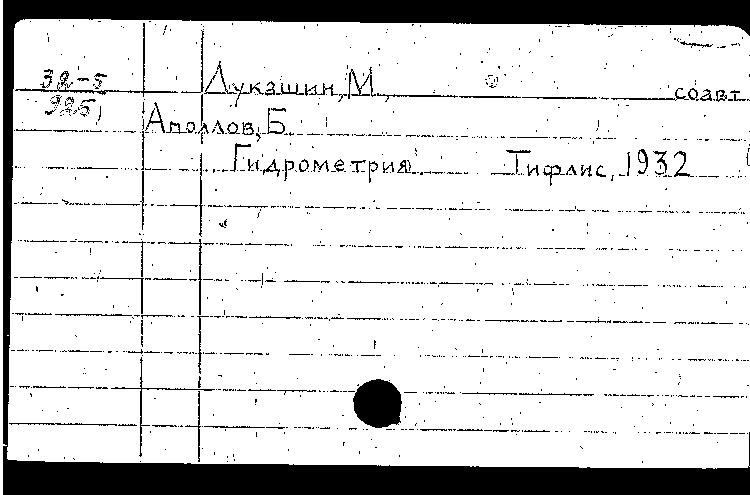 32-5 Лукашин, М., соавт.
925 Аполлов, Б.
Гидрометрия. Тифлис, 1932